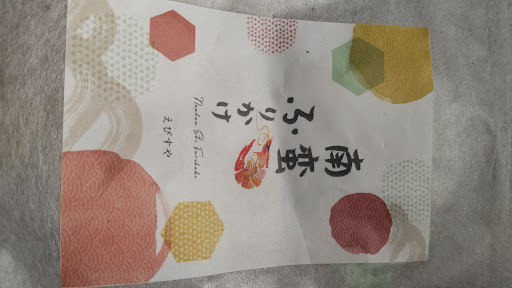 南蛮
ふりかけ
Nanban Ebi Furikake
えびすや